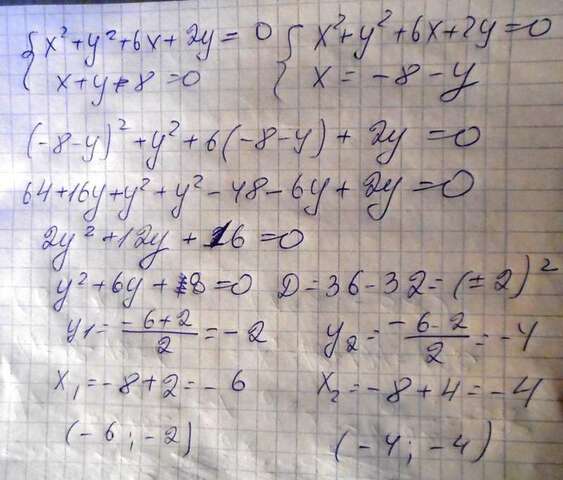 { x² + y² + 6x + 2y = 0 { x² + y² + 6x + 2y = 0
x + y + 8 = 0 x = -8 - y
(-8-y)² + y² + 6(-8-y) + 2y = 0
64 + 16y + y² + y² - 48 - 6y + 2y = 0
2y² + 12y + 16 = 0
y² + 6y + 8 = 0 D = 36 - 32 = (±2)²
y₁ = (-6+2)/2 = -2 y₂ = (-6-2)/2 = -4
x₁ = -8 + 2 = -6 x₂ = -8 + 4 = -4
(-6; -2) (-4; -4)